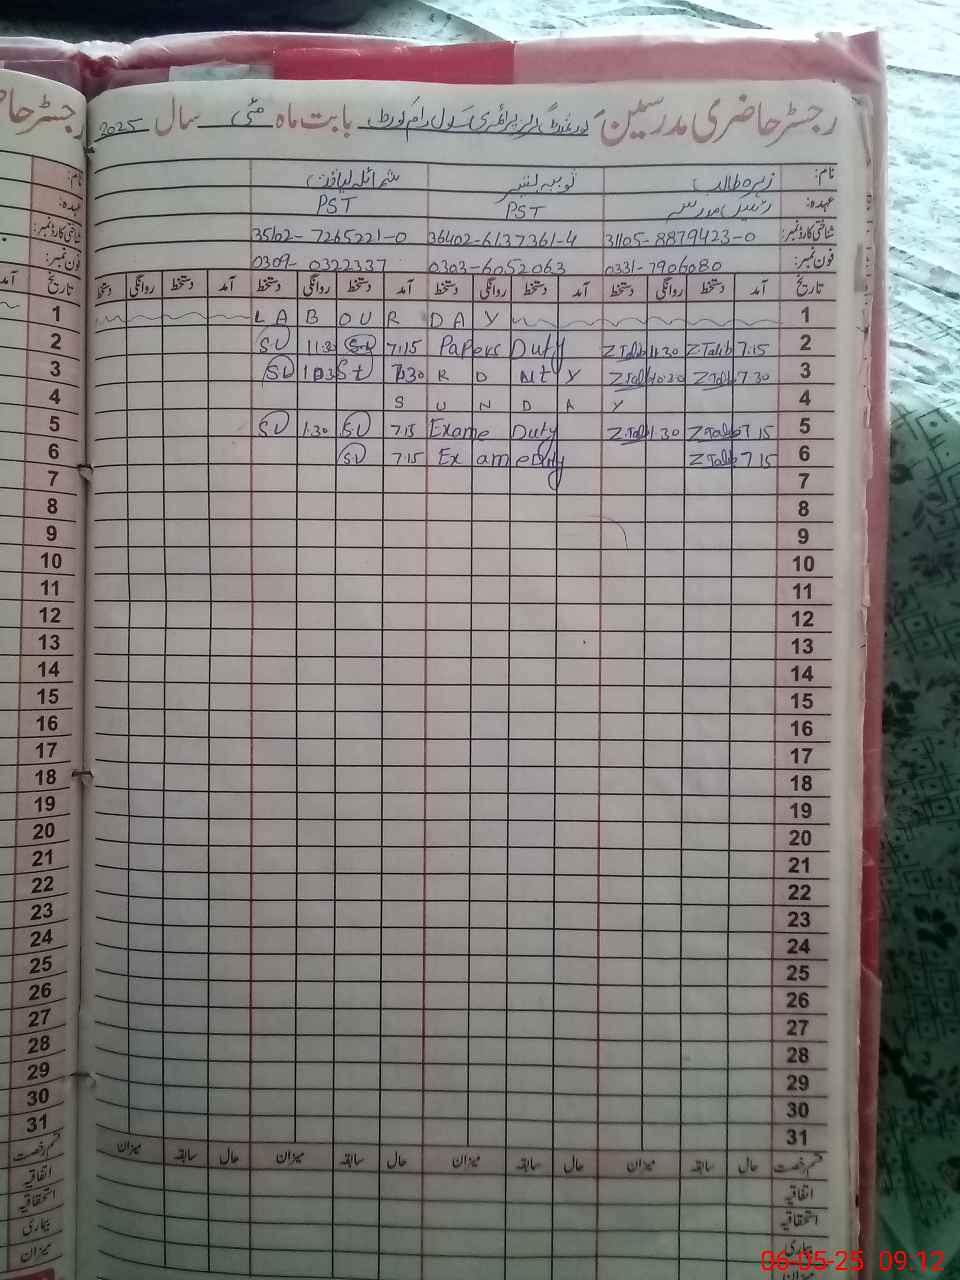 رجسٹر حاضری مدرسین گورنمنٹ گرلز پرائمری سکول رام کورٹ بابت ماہ مئی سال 2025
نام: زہرہ طالب ثوبیہ بشیر شمائلہ لیاقت
عہدہ: ہیڈ مدرسہ PST PST
شناختی کارڈ نمبر: 31105-8879423-0 36402-6137361-4 35102-7265221-0
فون نمبر: 0331-7906080 0303-6052063 0309-0322337
تاریخ آمد دستخط روانگی دستخط آمد دستخط روانگی دستخط آمد دستخط روانگی دستخط آمد دستخط روانگی دستخط
1 LABOUR DAY
2 7:15 Z.Talib 11:30 Z.Talib Papers Duty 7:15 S.U 11:30 S.U
3 7:30 Z.Talib 10:30 Z.Talib 7:30 10:30 S.U
4 SUNDAY
5 7:15 Z.Talib 1:30 Z.Talib Exame Duty 7:15 S.U 1:30 S.U
6 7:15 Z.Talib Exame Duty 7:15 S.U
7
8
9
10
11
12
13
14
15
16
17
18
19
20
21
22
23
24
25
26
27
28
29
30
31
قسم رخصت حال سابقہ میزان حال سابقہ میزان حال سابقہ میزان حال سابقہ میزان
اتفاقیہ
استحقاقیہ
بیماری
میزان
رجسٹر حا
آمد تاریخ
1
2
3
4
5
6
7
8
9
10
11
12
13
14
15
16
17
18
19
20
21
22
23
24
25
26
27
28
29
30
31
قسم رخصت
اتفاقیہ
استحقاقیہ
بیماری
میزان
06-05-25 09:12